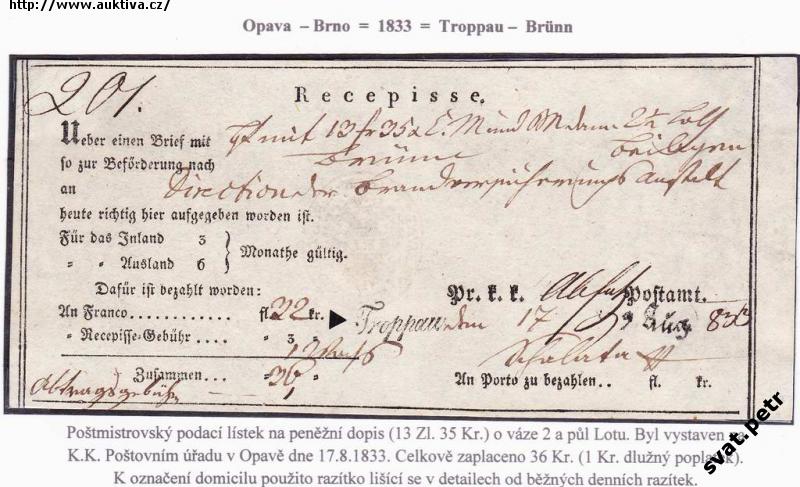 http://www.auktiva.cz/
Opava – Brno = 1833 = Troppau – Brünn
201.
Recepisse.
Ueber einen Brief mit mit 13 fr 35 x C. Münz 2½ Loth
so zur Beförderung nach Brünn
an Direction der Brandversicherungs Anstalt
heute richtig hier aufgegeben worden ist.
Für das Inland 3
" " Ausland 6 } Monathe gültig.
Dafür ist bezahlt worden:
Pr. k. k. Postamt.
An Franco............ fl. 22 kr. Troppau den 17 Aug 833
" Recepisse-Gebühr.... " 3 "
Zusammen... " 36 "
An Porto zu bezahlen.. fl. kr.
Abtragsgebühr 1
Poštmistrovský podací lístek na peněžní dopis (13 Zl. 35 Kr.) o váze 2 a půl Lotu. Byl vystaven
K.K. Poštovním úřadu v Opavě dne 17.8.1833. Celkově zaplaceno 36 Kr. (1 Kr. dlužný poplatek).
K označení domicilu použito razítko lišící se v detailech od běžných denních razítek.
svat.petr